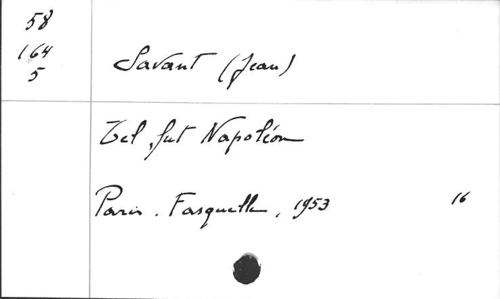 58
164
5
Savant (Jean)
Tel fut Napoléon
Paris. Fasquelle, 1953 16